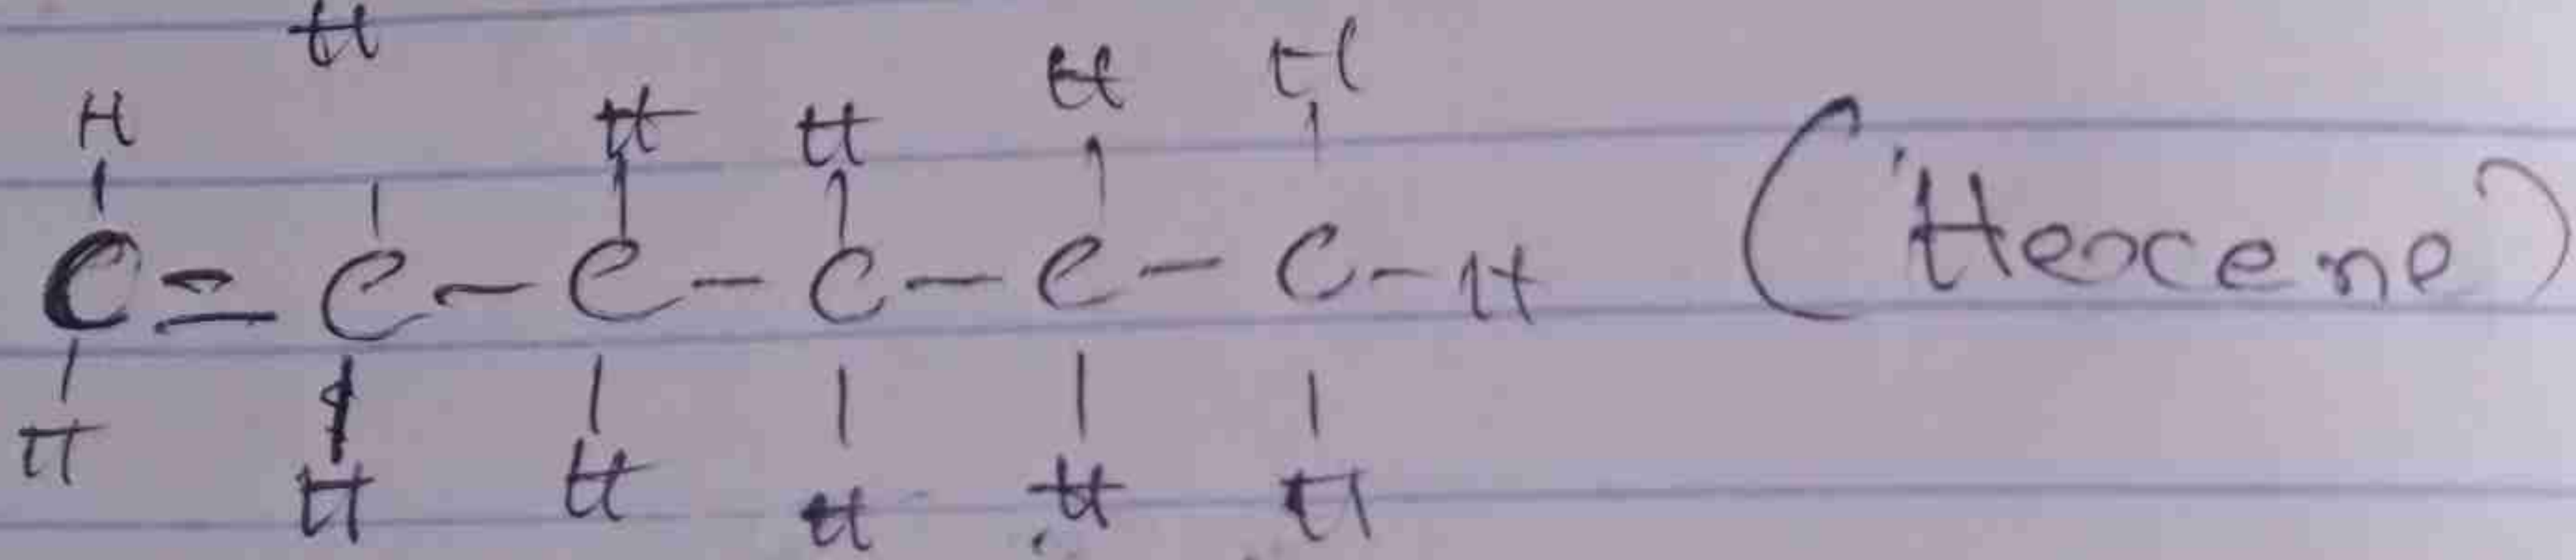 H
H H H H H
C = C - C - C - C - C - H (Hexcene)
H H H H H H